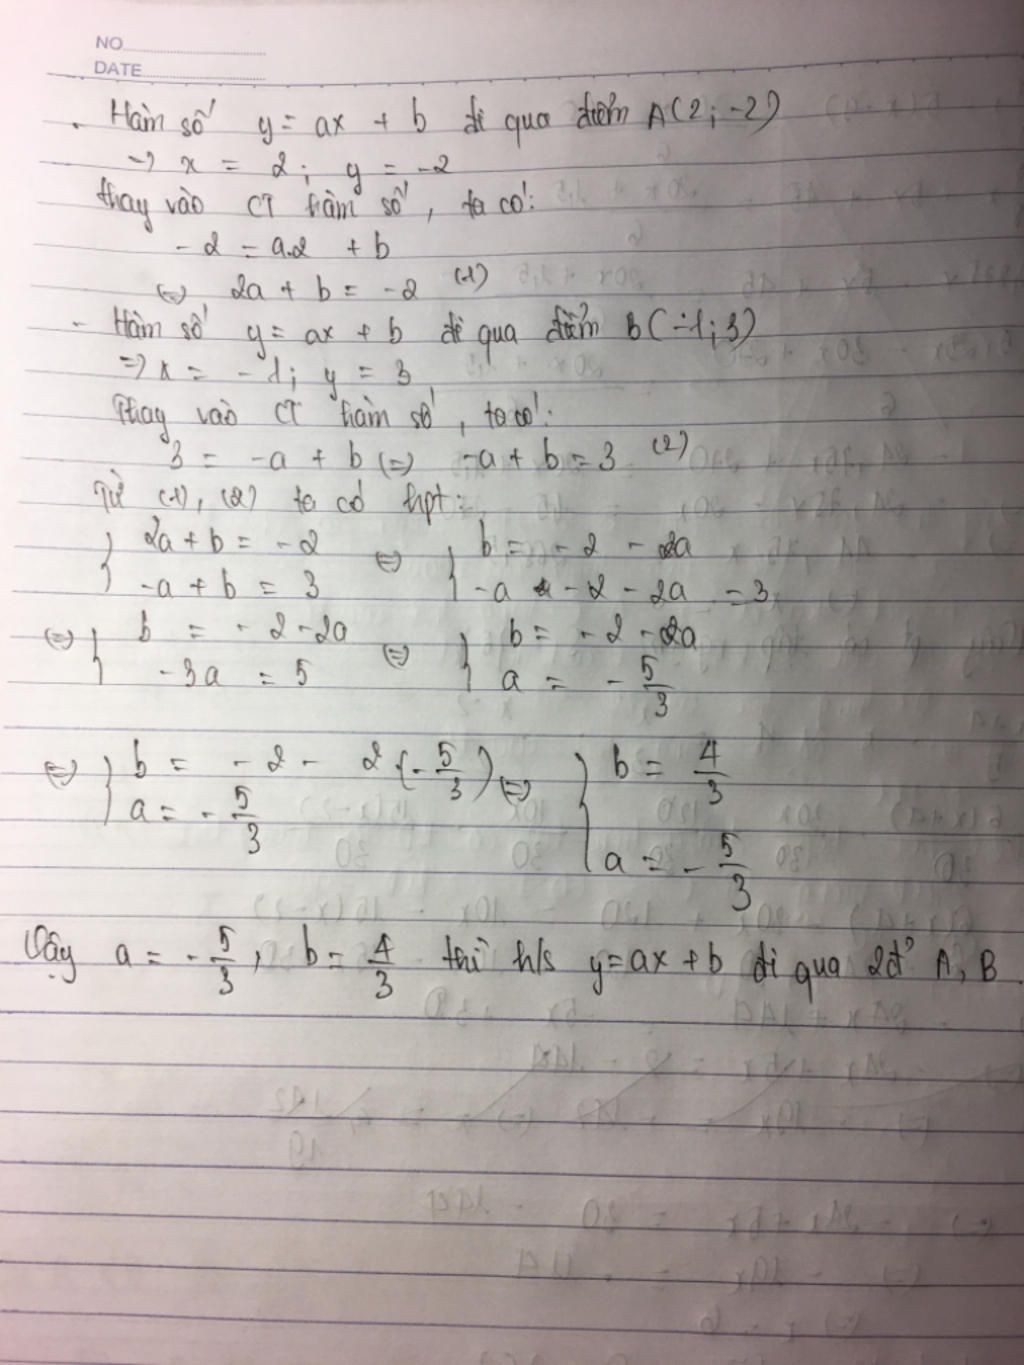 NO
DATE
. Hàm số y = ax + b đi qua điểm A(2; -2)
=> x = 2; y = -2
thay vào CT hàm số, ta có:
-2 = a.2 + b
<=> 2a + b = -2 (1)
- Hàm số y = ax + b đi qua điểm B(-1; 3)
=> x = -1; y = 3
Thay vào CT hàm số, ta có:
3 = -a + b <=> -a + b = 3 (2)
Từ (1), (2) ta có hpt:
{ 2a + b = -2 <=> { b = -2 - 2a
-a + b = 3 -a - 2 - 2a = 3
<=> { b = -2 - 2a <=> { b = -2 - 2a
-3a = 5 a = -5/3
<=> { b = -2 - 2.(-5/3) <=> { b = 4/3
a = -5/3 a = -5/3
Vậy a = -5/3, b = 4/3 thì h/s y = ax + b đi qua 2đ° A, B.